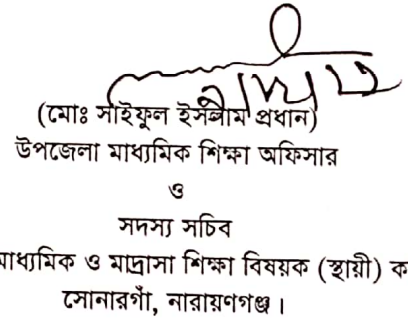 (মোঃ সাইফুল ইসলাম প্রধান)
উপজেলা মাধ্যমিক শিক্ষা অফিসার
ও
সদস্য সচিব
মাধ্যমিক ও মাদ্রাসা শিক্ষা বিষয়ক (স্থায়ী) ক
সোনারগাঁ, নারায়ণগঞ্জ।